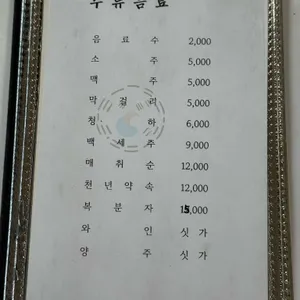 주류음료
음 료 수 2,000
소 주 5,000
맥 주 5,000
막 걸 리 5,000
청 하 6,000
백 세 주 9,000
매 취 순 12,000
천 년 약 속 12,000
복 분 자 15,000
와 인 싯 가
양 주 싯 가